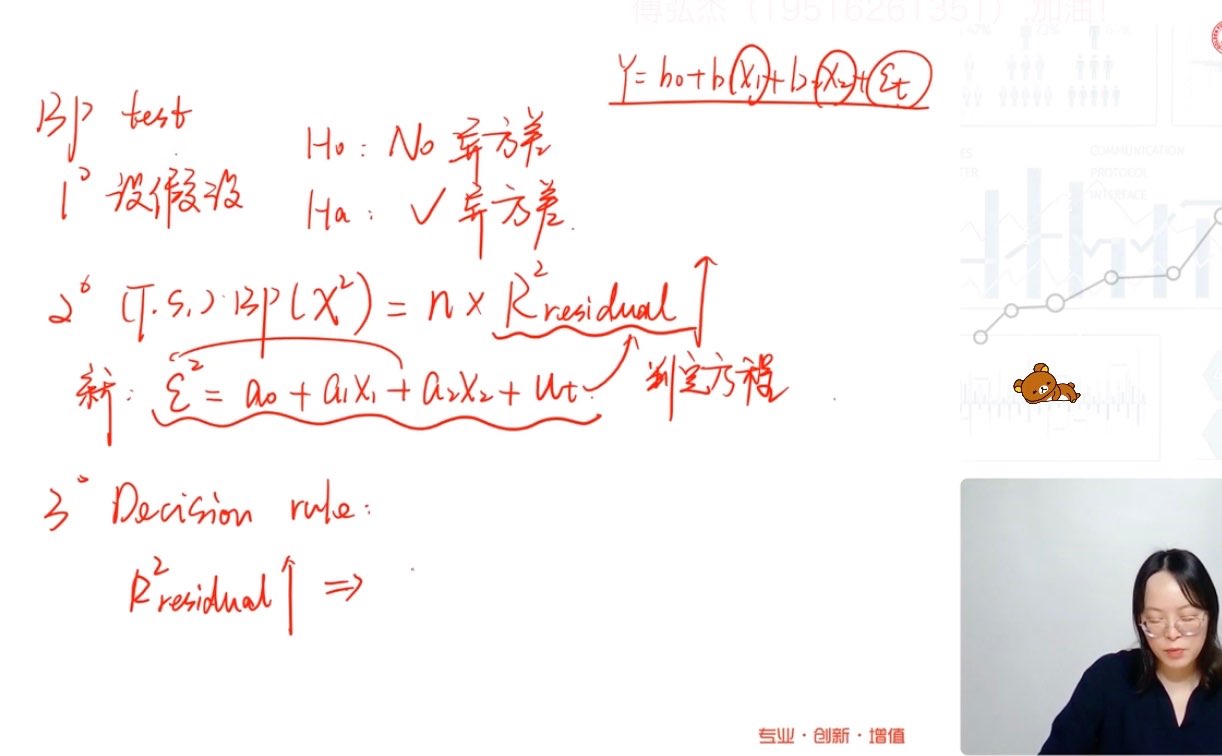 傅弘杰（19516261351）,加油!
Y = b0 + b1X1 + b2X2 + εt
BP test
1° 设假设
H0: No 异方差
Ha: ✓ 异方差.
2° (T.S.) BP(χ²) = n × R²residual ↑
新: ε² = a0 + a1X1 + a2X2 + ut
判定方程
3° Decision rule:
R²residual ↑ ⇒
COMMUNICATION
PROTOCOL
INTERFACE
专业·创新·增值